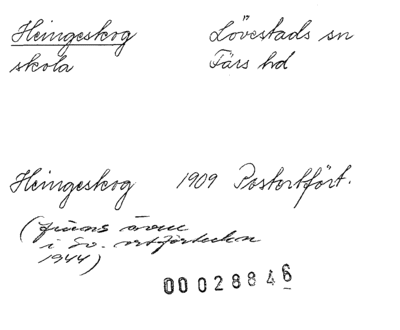 Heingeskog Lövestads sn
skola Färs hd
Heingeskog 1909 Postortfört.
(finns även
i Sv. ortförteckn
1944)
00028846